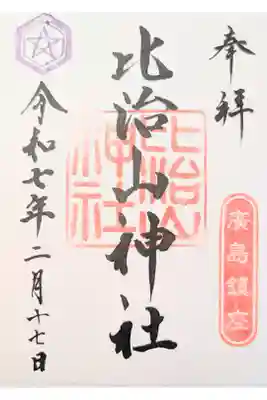 奉拝
廣島鎮座
比治山神社
比治山神社
令和七年二月十七日